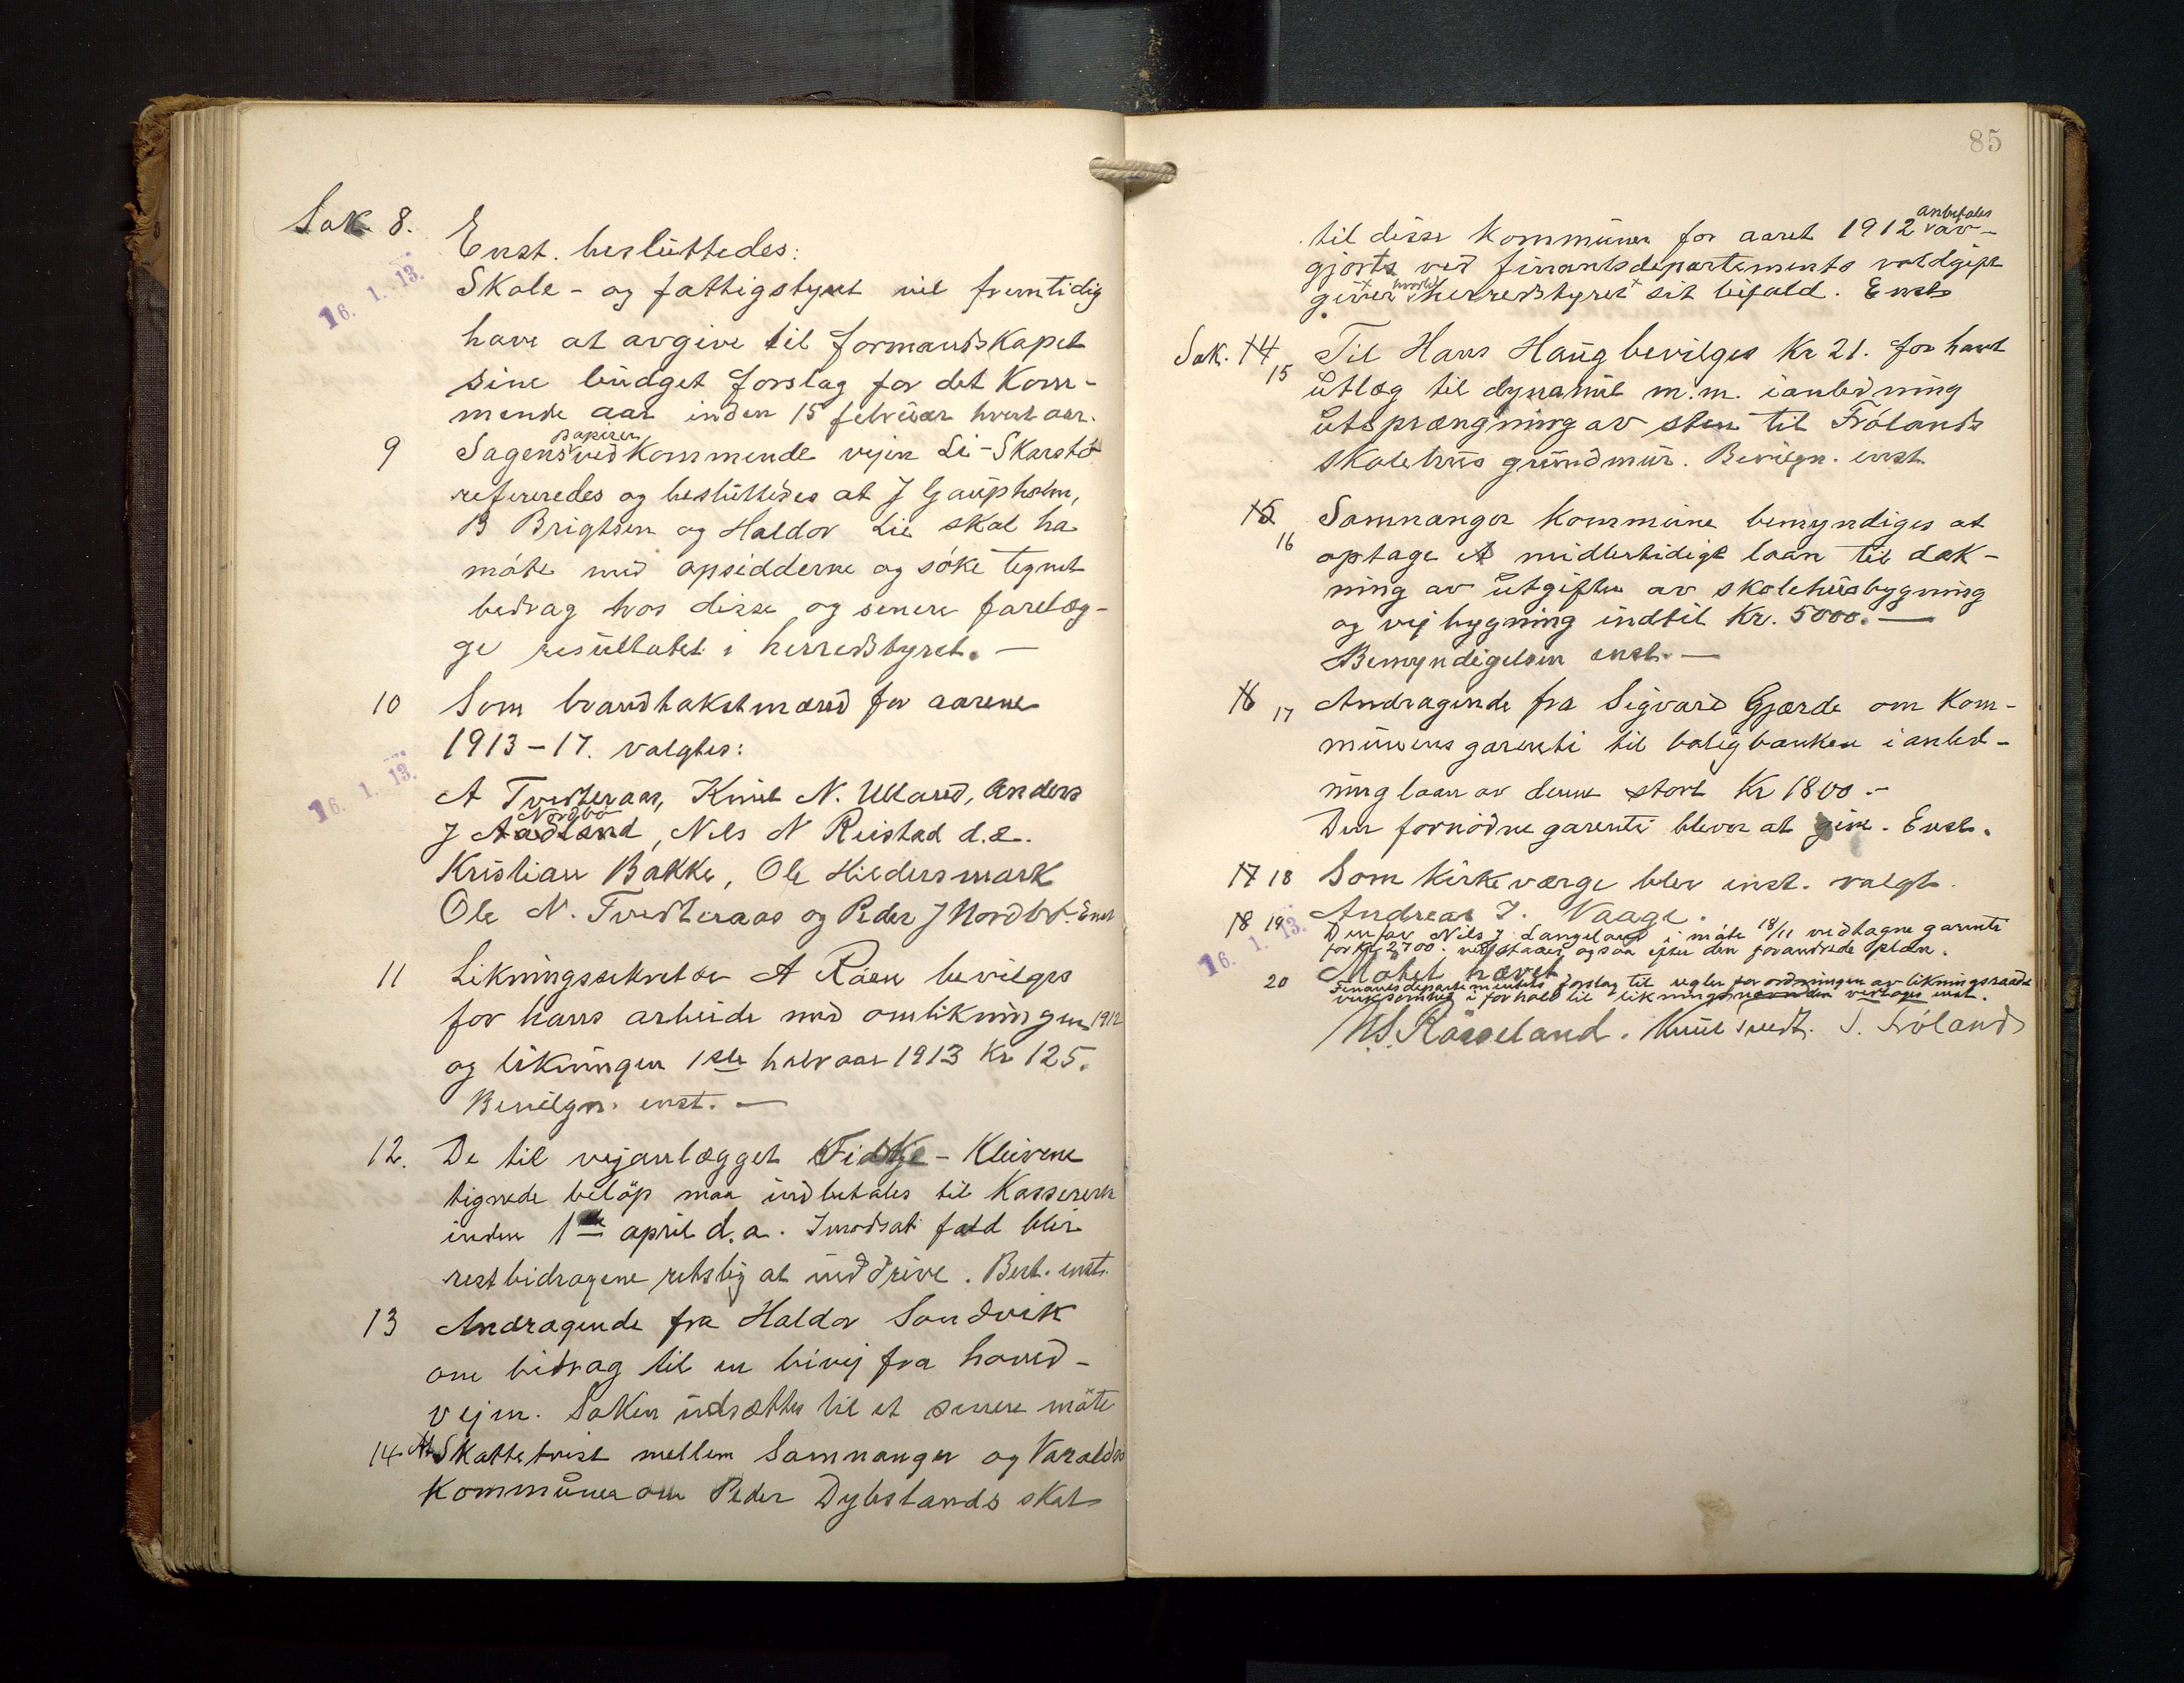 Sak. 8. Enst. besluttedes:
16. 1. 13.
Skole- og fattigstyret vil fremtidig
have at avgive til formandskapet
sine budget forslag for det kom-
mende aar inden 15 februar hvert aar.
9 Sagens papirer vedkommende vejen Li-Skarstö
refereredes og besluttedes at J Gaupholm,
B Brigtsen og Haldor Lie skal ha
möte med opsidderne og söke tegnet
bedrag hos disse og senere forelæg-
ge resultatet i herredstyret. —
10 Som brandtakstmænd for aarene
1913-17. valgtes:
16. 1. 13.
A Tvedteraas, Knut N. Ulland, Anders
J Aadland Nordbö, Nils N Reistad d.æ.
Kristian Bakke, Ole Hisdersmark
Ole N. Tvedteraas og Peder J Nordbö. Enst
11 Likningssekretær A Röen bevilges
for hans arbeide med omlikningen 1912
og likningen 1ste halvaar 1913 Kr 125.
Bevilgn. enst. —
12. De til vejanlægget Fidtje - Kleivene
tignede belöp maa indbetales til Kassereren
inden 1ste april d.a. I modsat fald blir
restbidragene retslig at inddrive. Besl. enst.
13 Andragende fra Haldor Sandvik
om bidrag til en bivej fra hoved-
vejen. Saken udsættes til et senere möte
14 Skattetvist mellem Samnanger og Varaldsö
kommuner om Peder Dybslands skat
85
til disse kommuner for aaret 1912 anbefales av-
gjort ved finantsdepartements voldgift
giver hvortil herredstyret sit bifald. Enst
Sak. 14 15 Til Hans Haug bevilges Kr 21. for havt
utlæg til dynamit m.m. i anledning
utsprængning av sten til Frölands
skolehus grundmur. Bevilgn. enst.
15 16 Samnanger kommune bemyndiges at
optage et midlertidigt laan til dæk-
ning av utgifter av skolehusbygning
og vejbygning indtil Kr. 5000. —
Bemyndigelsen enst. —
16 17 Andragende fra Sigvard Gjærde om kom-
munens garenti til boligbanken i anled-
ning laan av denne stort Kr 1800 -
Den fornödne garenti blever at give. Enst.
17 18 Som kirkeværge blev enst. valgt
Andreas J. Vaage.
16. 1. 13.
18 19 Den for Nils J Langeland i möte 18/11 vedtagne garenti
for Kr 2700. vedstaaes ogsaa efter den forandrede plan.
Mötet hævet
20 Finansdepartementets forslag til regler for ordningen av likningsraadets
virksomhet i forhold til likningsnævnden vedtages enst.
N.S. Röisæland. Knut Tvedt. S. Fröland